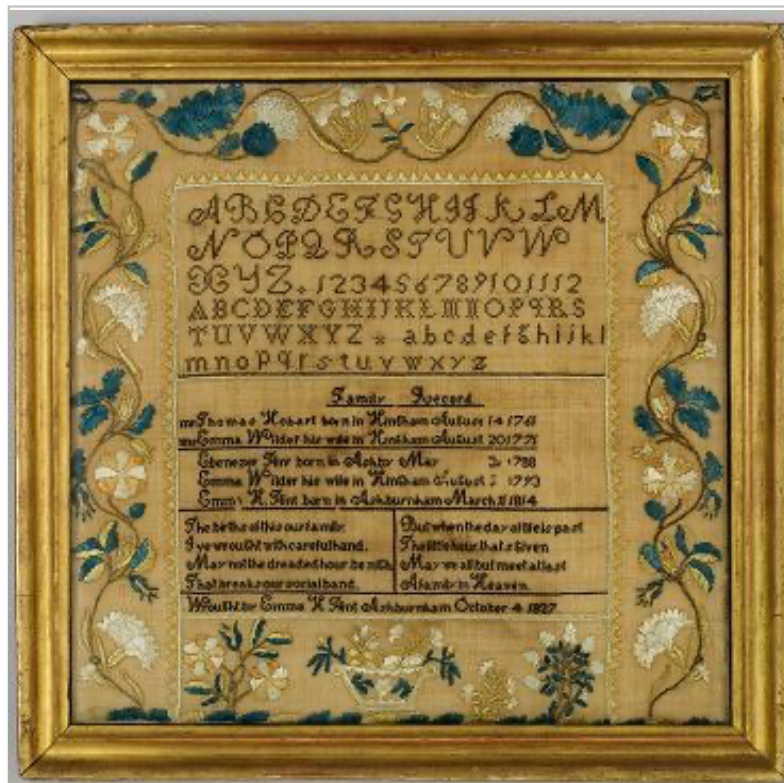 A B C D E F G H I J K L M
N O P Q R S T U V W
X Y Z . 1 2 3 4 5 6 7 8 9 10 11 12
A B C D E F G H I J K L M N O P Q R S
T U V W X Y Z * a b c d e f g h i j k l
m n o p q r s t u v w x y z
Family Record
Thomas Hobart born in Hingham August 14
Emma Wilder his wife in Hingham August 20
Ebenezer born in Ashby 1788
Emma Wilder his wife in Hingham August 1793
Emma H. born in Ashburnham March 1814
The births of this our family
I've wrought with careful hand.
May not the dreaded hour be nigh
That breaks our social band.
But when the day of life is past
The little hour that's given
May we all but meet at last
A family in Heaven.
Wrought by Emma H Ashburnham October 4 1827